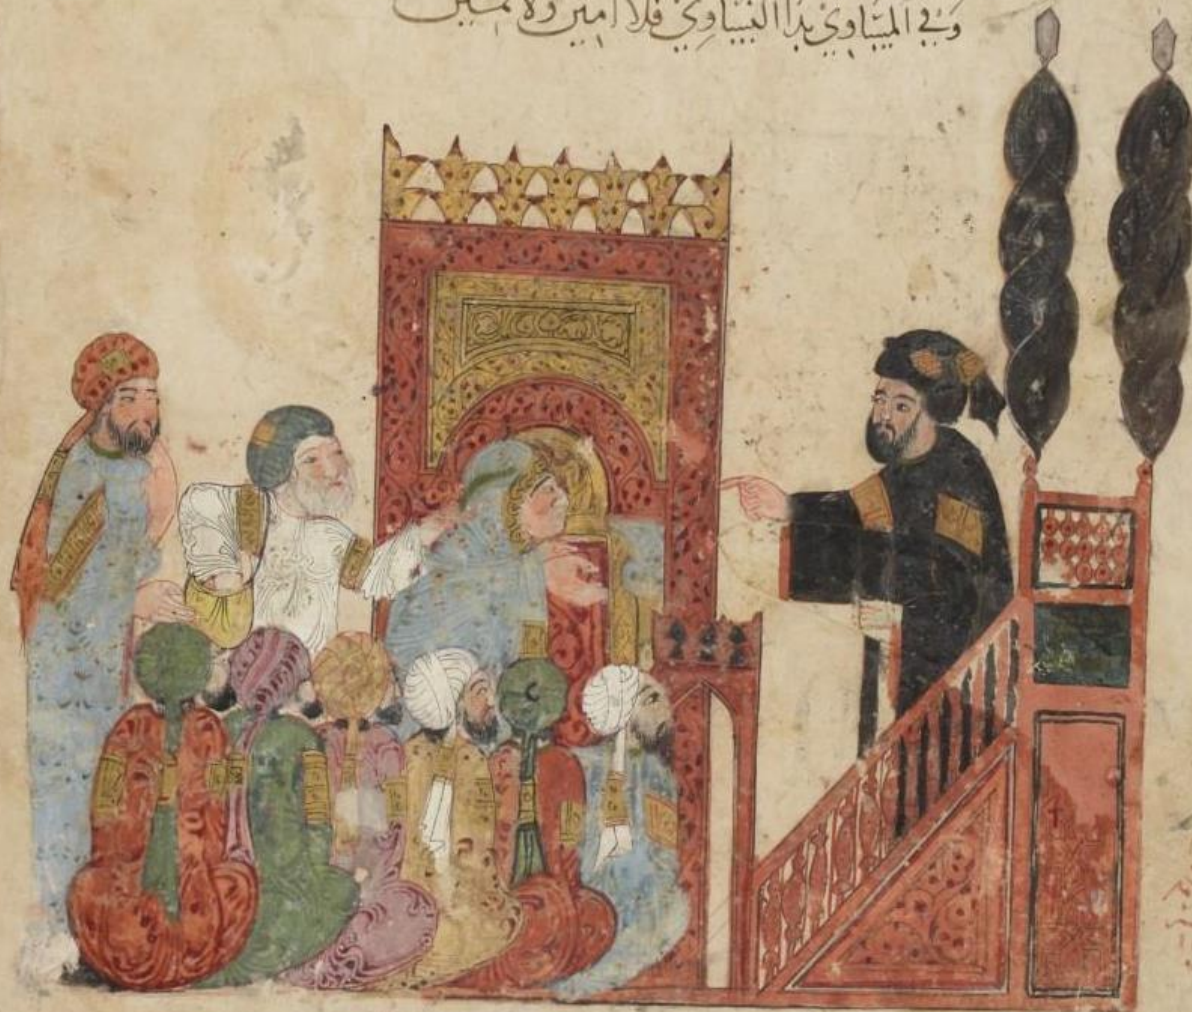 وَفي المَسَاوِي بَدَا التَسَاوِي فَلا أمين ولا ثمين